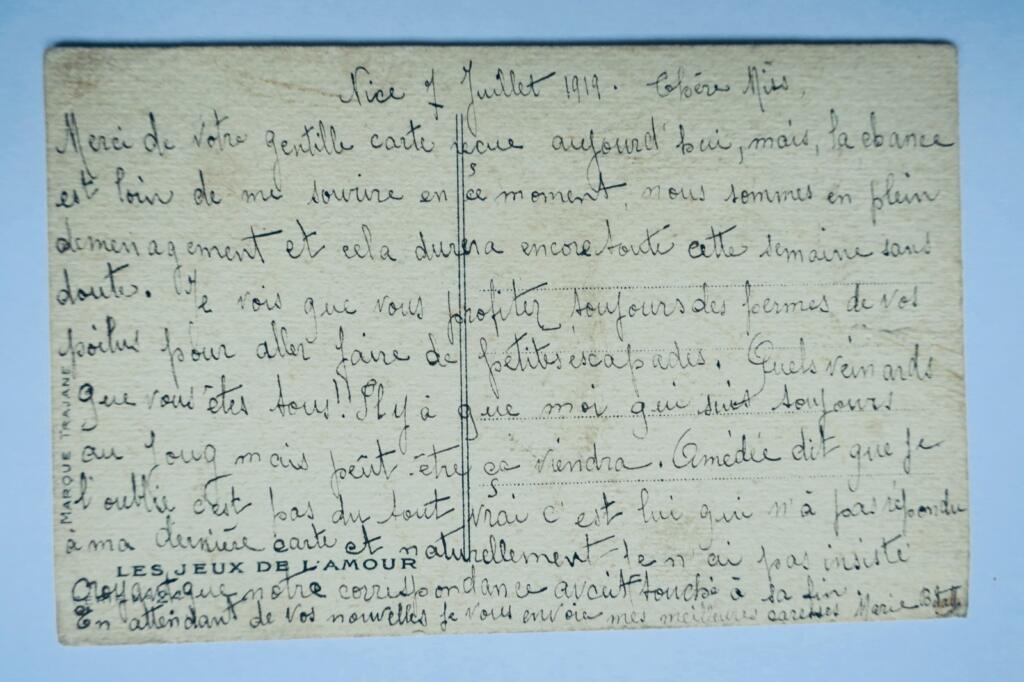 Nice 7 Juillet 1919. Chère Miss,
Merci de votre gentille carte reçue aujourd'hui, mais, la chance
est loin de me sourire en ce moment, nous sommes en plein
demenagement et cela durera encore toute cette semaine sans
doute. Je vois que vous profitez toujours des permes de vos
poilus pour aller faire de petites escapades. Quels veinards
que vous êtes tous!! Il y à que moi qui suis toujours
au joug mais peût-être ça viendra. Amédée dit que je
l'oublie c'est pas du tout vrai c'est lui qui n'à pas répondu
à ma dernière carte et naturellement je n'ai pas insisté
Croyant que notre correspondance avait touché à sa fin.
En attendant de vos nouvelles je vous envoie mes meilleures caresses Marie
MARQUE TRAJANE
LES JEUX DE L'AMOUR